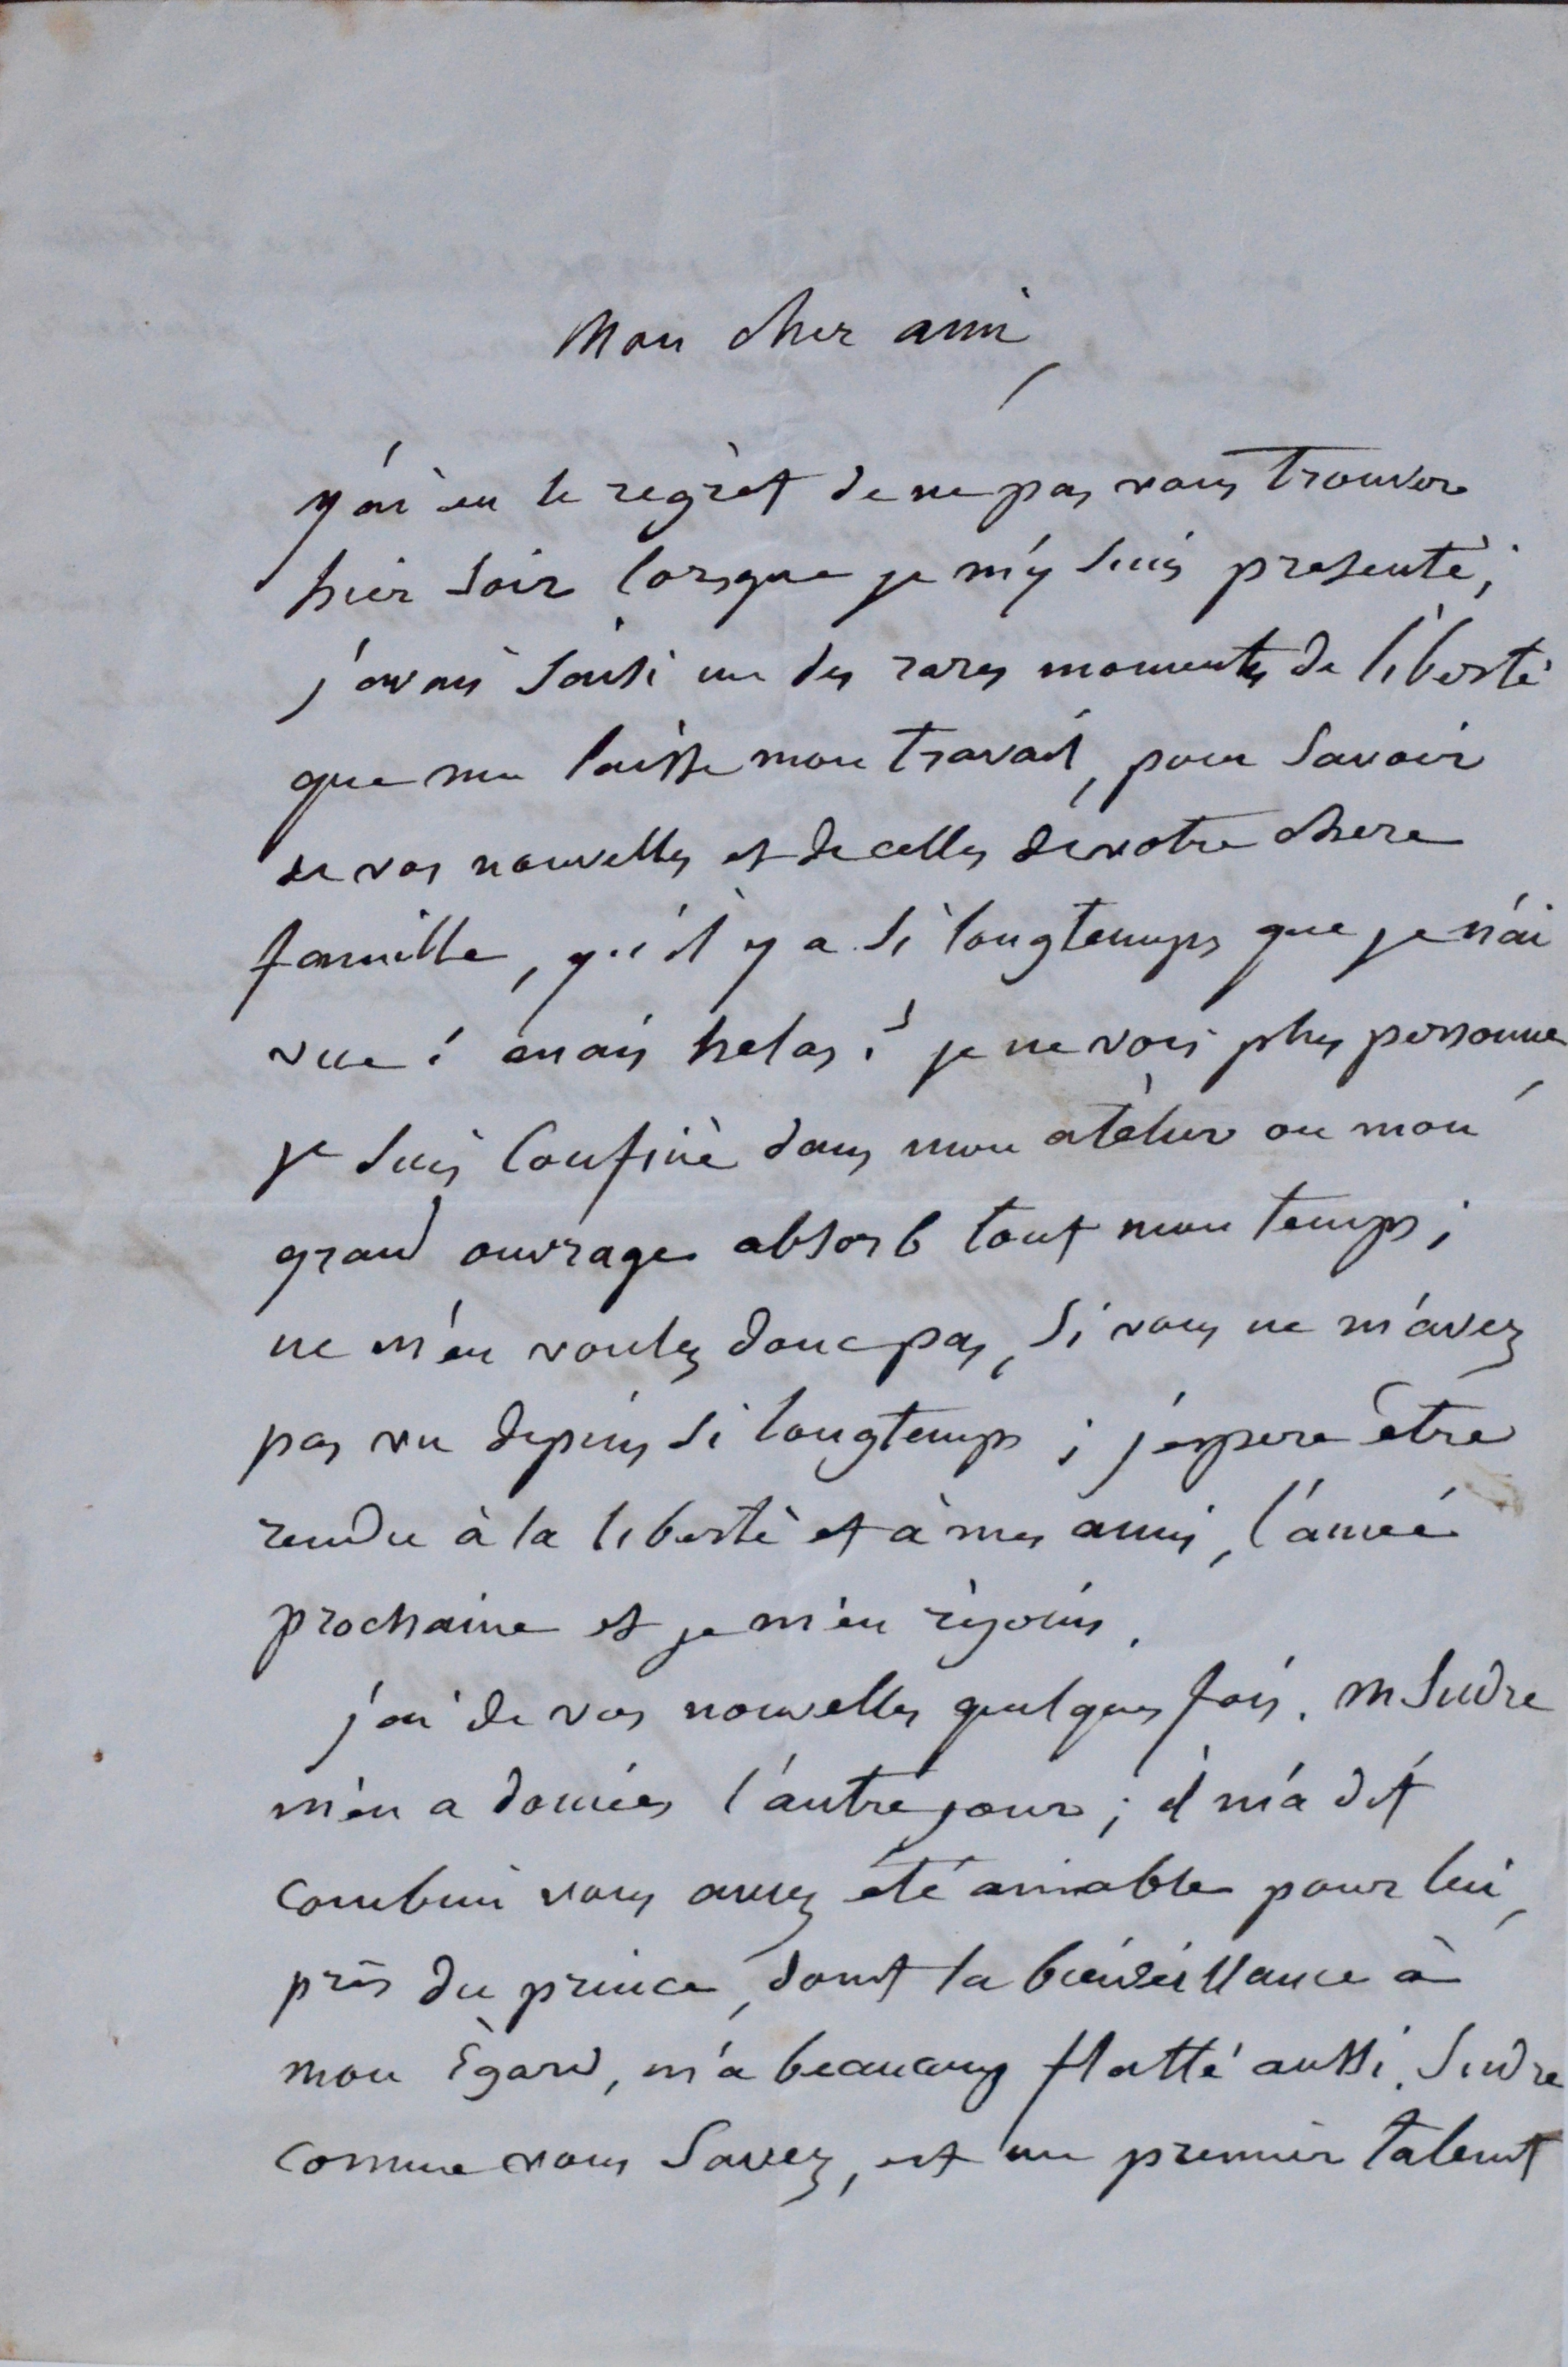 Mon cher ami,
j'ai eu le regrèt de ne pas vous trouver
hier soir lorsque je m'y suis presenté;
j'avais saisi un des rares moments de liberté
que me laisse mon travail, pour savoir
de vos nouvelles et de celles de votre chere
famille, qu'il y a si longtemps que je n'ai
vue! mais helas! je ne vois plus personne,
je suis confiné dans mon atèlier ou mon
grand ouvrage absorb tout mon temps;
ne m'en voulez donc pas, si vous ne m'avez
pas vu depuis si longtemps; j'espere être
rendu à la liberté et à mes amis, l'année
prochaine et je m'en réjouis.
j'ai de vos nouvelles quelques fois. M Sudre
m'en a données l'autre jour; il m'a dit
combien vous aviez été aimable pour lui,
près du prince, dont la bienveillance à
mon Égard, m'a beaucoup flatté aussi. Sudre
comme vous savez, est un premier talent